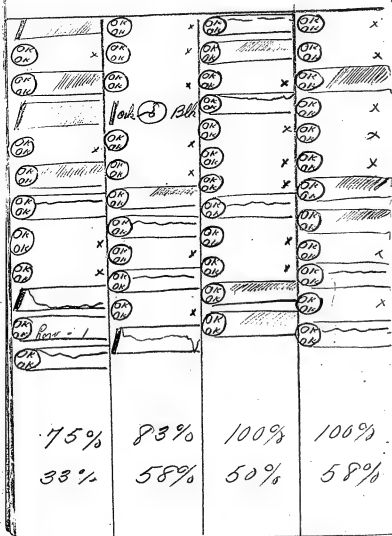 OK
OK x
OK
OK
OK
OK x
OK
OK
OK
OK
OK
OK x
OK
OK x
OK
OK
OK
OK
75%
33%
OK
OK x
OK
OK x
OK
OK x
Blk
OK
OK x
OK
OK x
OK
OK
OK
OK
OK
OK x
OK
OK
OK
OK x
83%
58%
OK
OK
OK
OK
OK
OK x
OK
OK
OK
OK x
OK
OK x
OK
OK x
OK
OK
OK
OK x
OK
OK x
OK
OK
OK
OK
100%
50%
OK
OK x
OK
OK x
OK
OK
OK
OK x
OK
OK x
OK
OK x
OK
OK
OK
OK
OK
OK x
OK
OK
OK
OK x
OK
OK
100%
58%